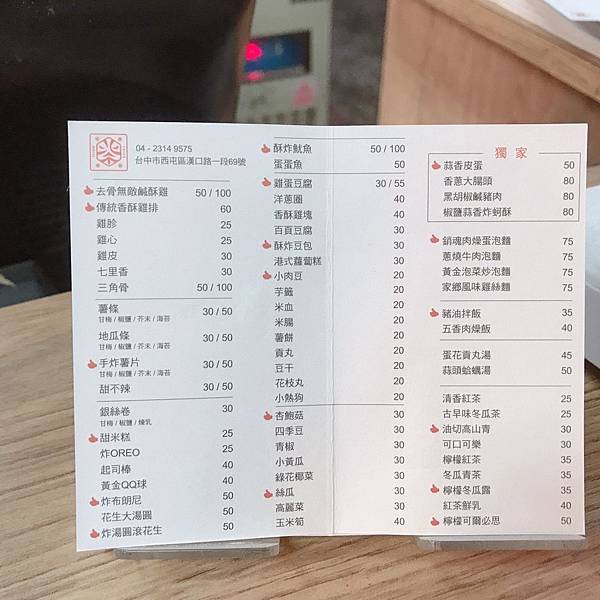 04 - 2314 9575
台中市西屯區漢口路一段69號
去骨無敵鹹酥雞 50 / 100
傳統香酥雞排 60
雞胗 25
雞心 25
雞皮 30
七里香 30
三角骨 50 / 100
薯條 30 / 50
甘梅 / 椒鹽 / 芥末 / 海苔
地瓜條 30 / 50
甘梅 / 椒鹽 / 芥末 / 海苔
手炸薯片 30 / 50
甘梅 / 椒鹽 / 芥末 / 海苔
甜不辣 30 / 50
銀絲卷 30
甘梅 / 椒鹽 / 煉乳
甜米糕 25
炸OREO 25
起司棒 40
黃金QQ球 40
炸布朗尼 50
花生大湯圓 50
炸湯圓滾花生 50
酥炸魷魚 50 / 100
蛋蛋魚 50
雞蛋豆腐 30 / 55
洋蔥圈 40
香酥雞塊 40
百頁豆腐 30
酥炸豆包 30
港式蘿蔔糕 30
小肉豆 20
芋籤 20
米血 20
米腸 20
薯餅 20
貢丸 20
豆干 20
花枝丸 20
小熱狗 20
杏鮑菇 30
四季豆 30
青椒 30
小黃瓜 30
綠花椰菜 30
絲瓜 30
高麗菜 30
玉米筍 40
獨家
蒜香皮蛋 50
香蔥大腸頭 80
黑胡椒鹹豬肉 80
椒鹽蒜香炸蚵酥 80
銷魂肉燥蛋泡麵 75
蔥燒牛肉泡麵 75
黃金泡菜炒泡麵 75
家鄉風味雞絲麵 75
豬油拌飯 35
五香肉燥飯 40
蛋花貢丸湯 45
蒜頭蛤蠣湯 50
清香紅茶 25
古早味冬瓜茶 25
油切高山青 30
可口可樂 30
檸檬紅茶 35
冬瓜青茶 35
檸檬冬瓜露 35
紅茶鮮乳 40
檸檬可爾必思 50